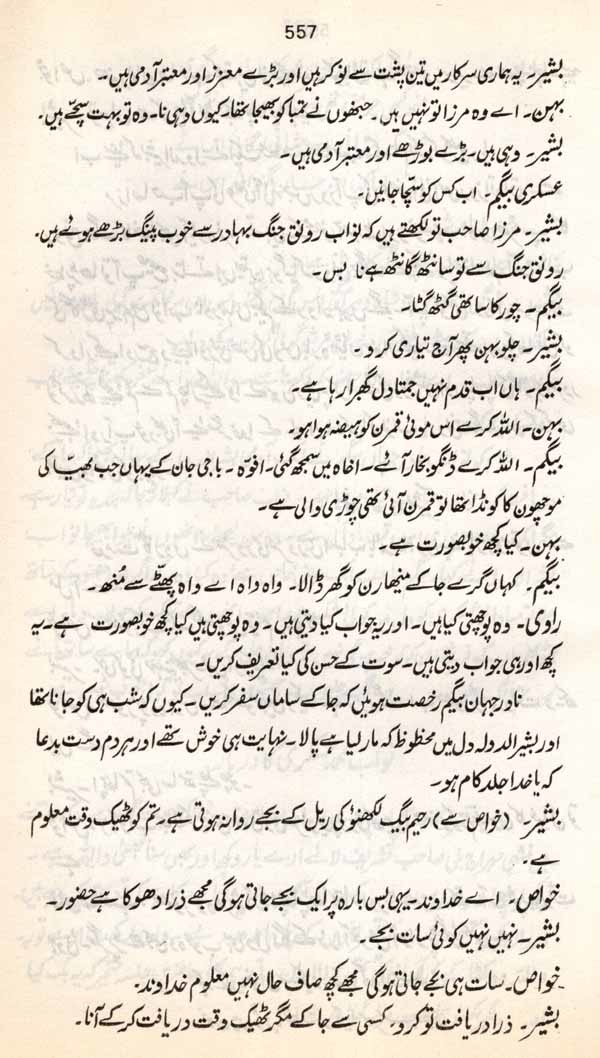 557
بشیر۔ یہ ہماری سرکار میں تین پشت سے نوکر ہیں اور بڑے معزز اور معتبر آدمی ہیں۔
بہن۔ اے وہ مرزا تو نہیں ہیں۔ جنھوں نے تمبا کو بھیجا تھا۔ کیوں وہی نا۔ وہ تو بہت سچے ہیں۔
بشیر۔ وہی ہیں۔ بڑے بوڑھے اور معتبر آدمی ہیں۔
عسکری بیگم۔ اب کس کو سچا جانیں۔
بشیر۔ مرزا صاحب تو لکھتے ہیں کہ نواب رونق جنگ بہادر سے خوب پینگ بڑھے ہوئے ہیں۔
رونق جنگ سے تو سانٹھ گانٹھ ہے نا بس۔
بیگم۔ چور کا ساتھی گٹھ گٹا۔
بشیر۔ چلو بہن پھر آج تیاری کر دو۔
بیگم۔ ہاں اب قدم نہیں جمتا دل گھبرا رہا ہے۔
بہن۔ اللہ کرے اس موئی قمرن کو ہیضہ ہوا ہو۔
بیگم۔ اللہ کرے ڈنگو بخار آئے۔ اخاہ میں سمجھ گئی۔ افوہ۔ باجی جان کے یہاں جب بھیّا کی
موچھوں کا کونڈا تھا تو قمرن آئی تھی چوڑی والی ہے۔
بہن۔ کیا کچھ خوبصورت ہے۔
بیگم۔ کہاں گرے جا کے منیھارن کو گھر ڈالا۔ واہ واہ اے واہ پھٹے سے مُنھ۔
راوی۔ وہ پوچھتی کیا ہیں۔ اور یہ جواب کیا دیتی ہیں۔ وہ پوچھتی ہیں کیا کچھ خوبصورت ہے۔ یہ
کچھ اور ہی جواب دیتی ہیں۔ سوت کے حسن کی کیا تعریف کریں۔
نادر جہان بیگم رخصت ہوئیں کہ جا کے ساماں سفر کریں۔ کیوں کہ شب ہی کو جانا تھا
اور بشیر الدولہ دل میں محظوظ کہ مار لیا ہے پالا۔ نہایت ہی خوش تھے اور ہر دم دست بدعا
کہ یا خدا جلد کام ہو۔
بشیر۔ (خواص سے) رحیم بیگ لکھنؤ کی ریل کے بجے روانہ ہوتی ہے۔ تم کو ٹھیک وقت معلوم
ہے۔
خواص۔ اے خداوند۔ یہی بس بارہ پر ایک بجے جاتی ہوگی مجھے ذرا دھوکا ہے حضور۔
بشیر۔ نہیں نہیں کوئی سات بجے۔
خواص۔ سات ہی بجے جاتی ہوگی مجھے کچھ صاف حال نہیں معلوم خداوند۔
بشیر۔ ذرا دریافت تو کرو۔ کسی سے جا کے مگر ٹھیک وقت دریافت کر کے آنا۔